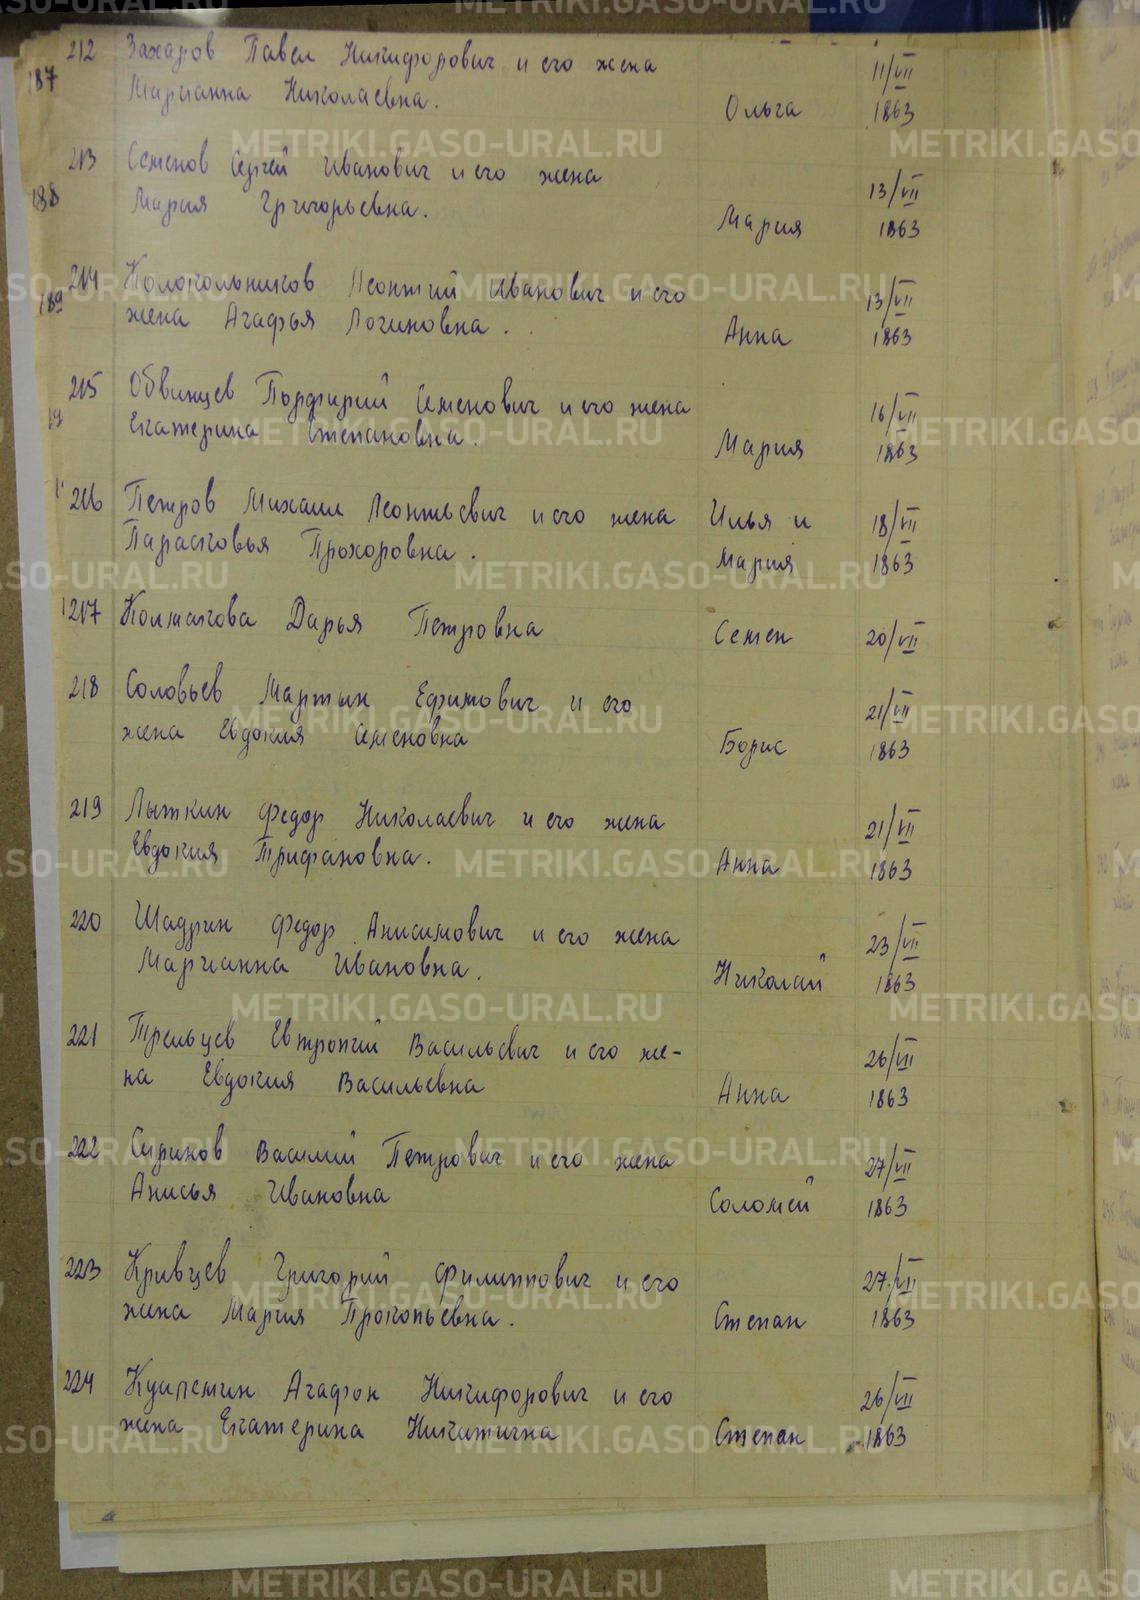 212 Захаров Павел Никифорович и его жена 11/VII
Марианна Николаевна. Ольга 1863
213 Семенов Сергей Иванович и его жена 13/VII
Мария Григорьевна. Мария 1863
214 Колокольников Леонтий Иванович и его 13/VII
жена Агафья Логиновна. Анна 1863
215 Обвинцев Порфирий Семенович и его жена 16/VII
Екатерина Степановна. Мария 1863
216 Петров Михаил Леонтьевич и его жена Илья и 18/VII
Парасковья Прохоровна. Мария 1863
217 Колмакова Дарья Петровна Семен 20/VII
218 Соловьев Мартын Ефимович и его 21/VII
жена Евдокия Семеновна Борис 1863
219 Лыткин Федор Николаевич и его жена 21/VII
Евдокия Трифановна. Анна 1863
220 Шадрин Федор Анисимович и его жена 23/VII
Марианна Ивановна. Николай 1863
221 Трельцев Евтропий Васильевич и его же- 26/VII
на Евдокия Васильевна Анна 1863
222 Сиринов Василий Петрович и его жена 27/VII
Анисья Ивановна Соломей 1863
223 Кривцев Григорий Филиппович и его 27/VII
жена Мария Прокопьевна. Степан 1863
224 Агафон Никифорович и его 26/VII
жена Екатерина Никитична Степан 1863
187
188
189
METRIKI.GASO-URAL.RU